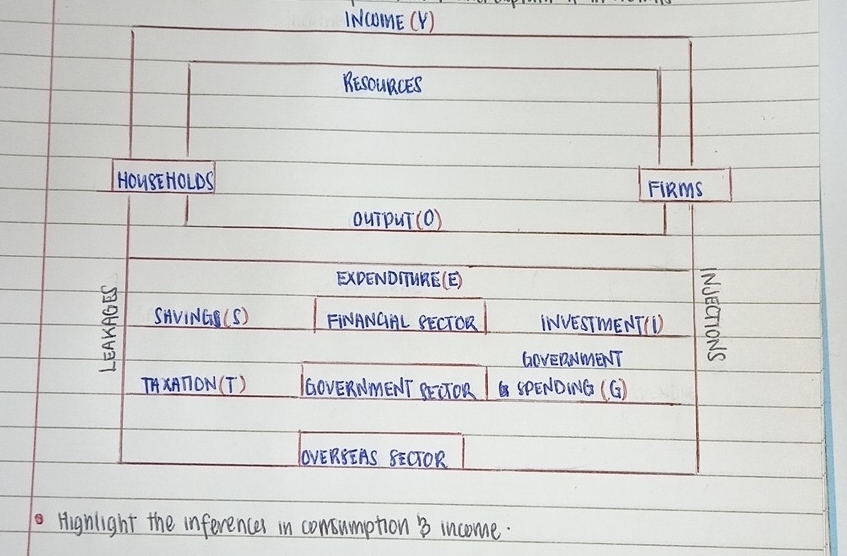 INCOME (Y)
RESOURCES
HOUSEHOLDS
FIRMS
OUTPUT (O)
EXPENDITURE (E)
LEAKAGES
INJECTIONS
SAVINGS (S)
FINANCIAL SECTOR
INVESTMENT (I)
GOVERNMENT
TAXATION (T)
GOVERNMENT SECTOR
SPENDING (G)
OVERSEAS SECTOR
• Highlight the inferences in consumption & income.